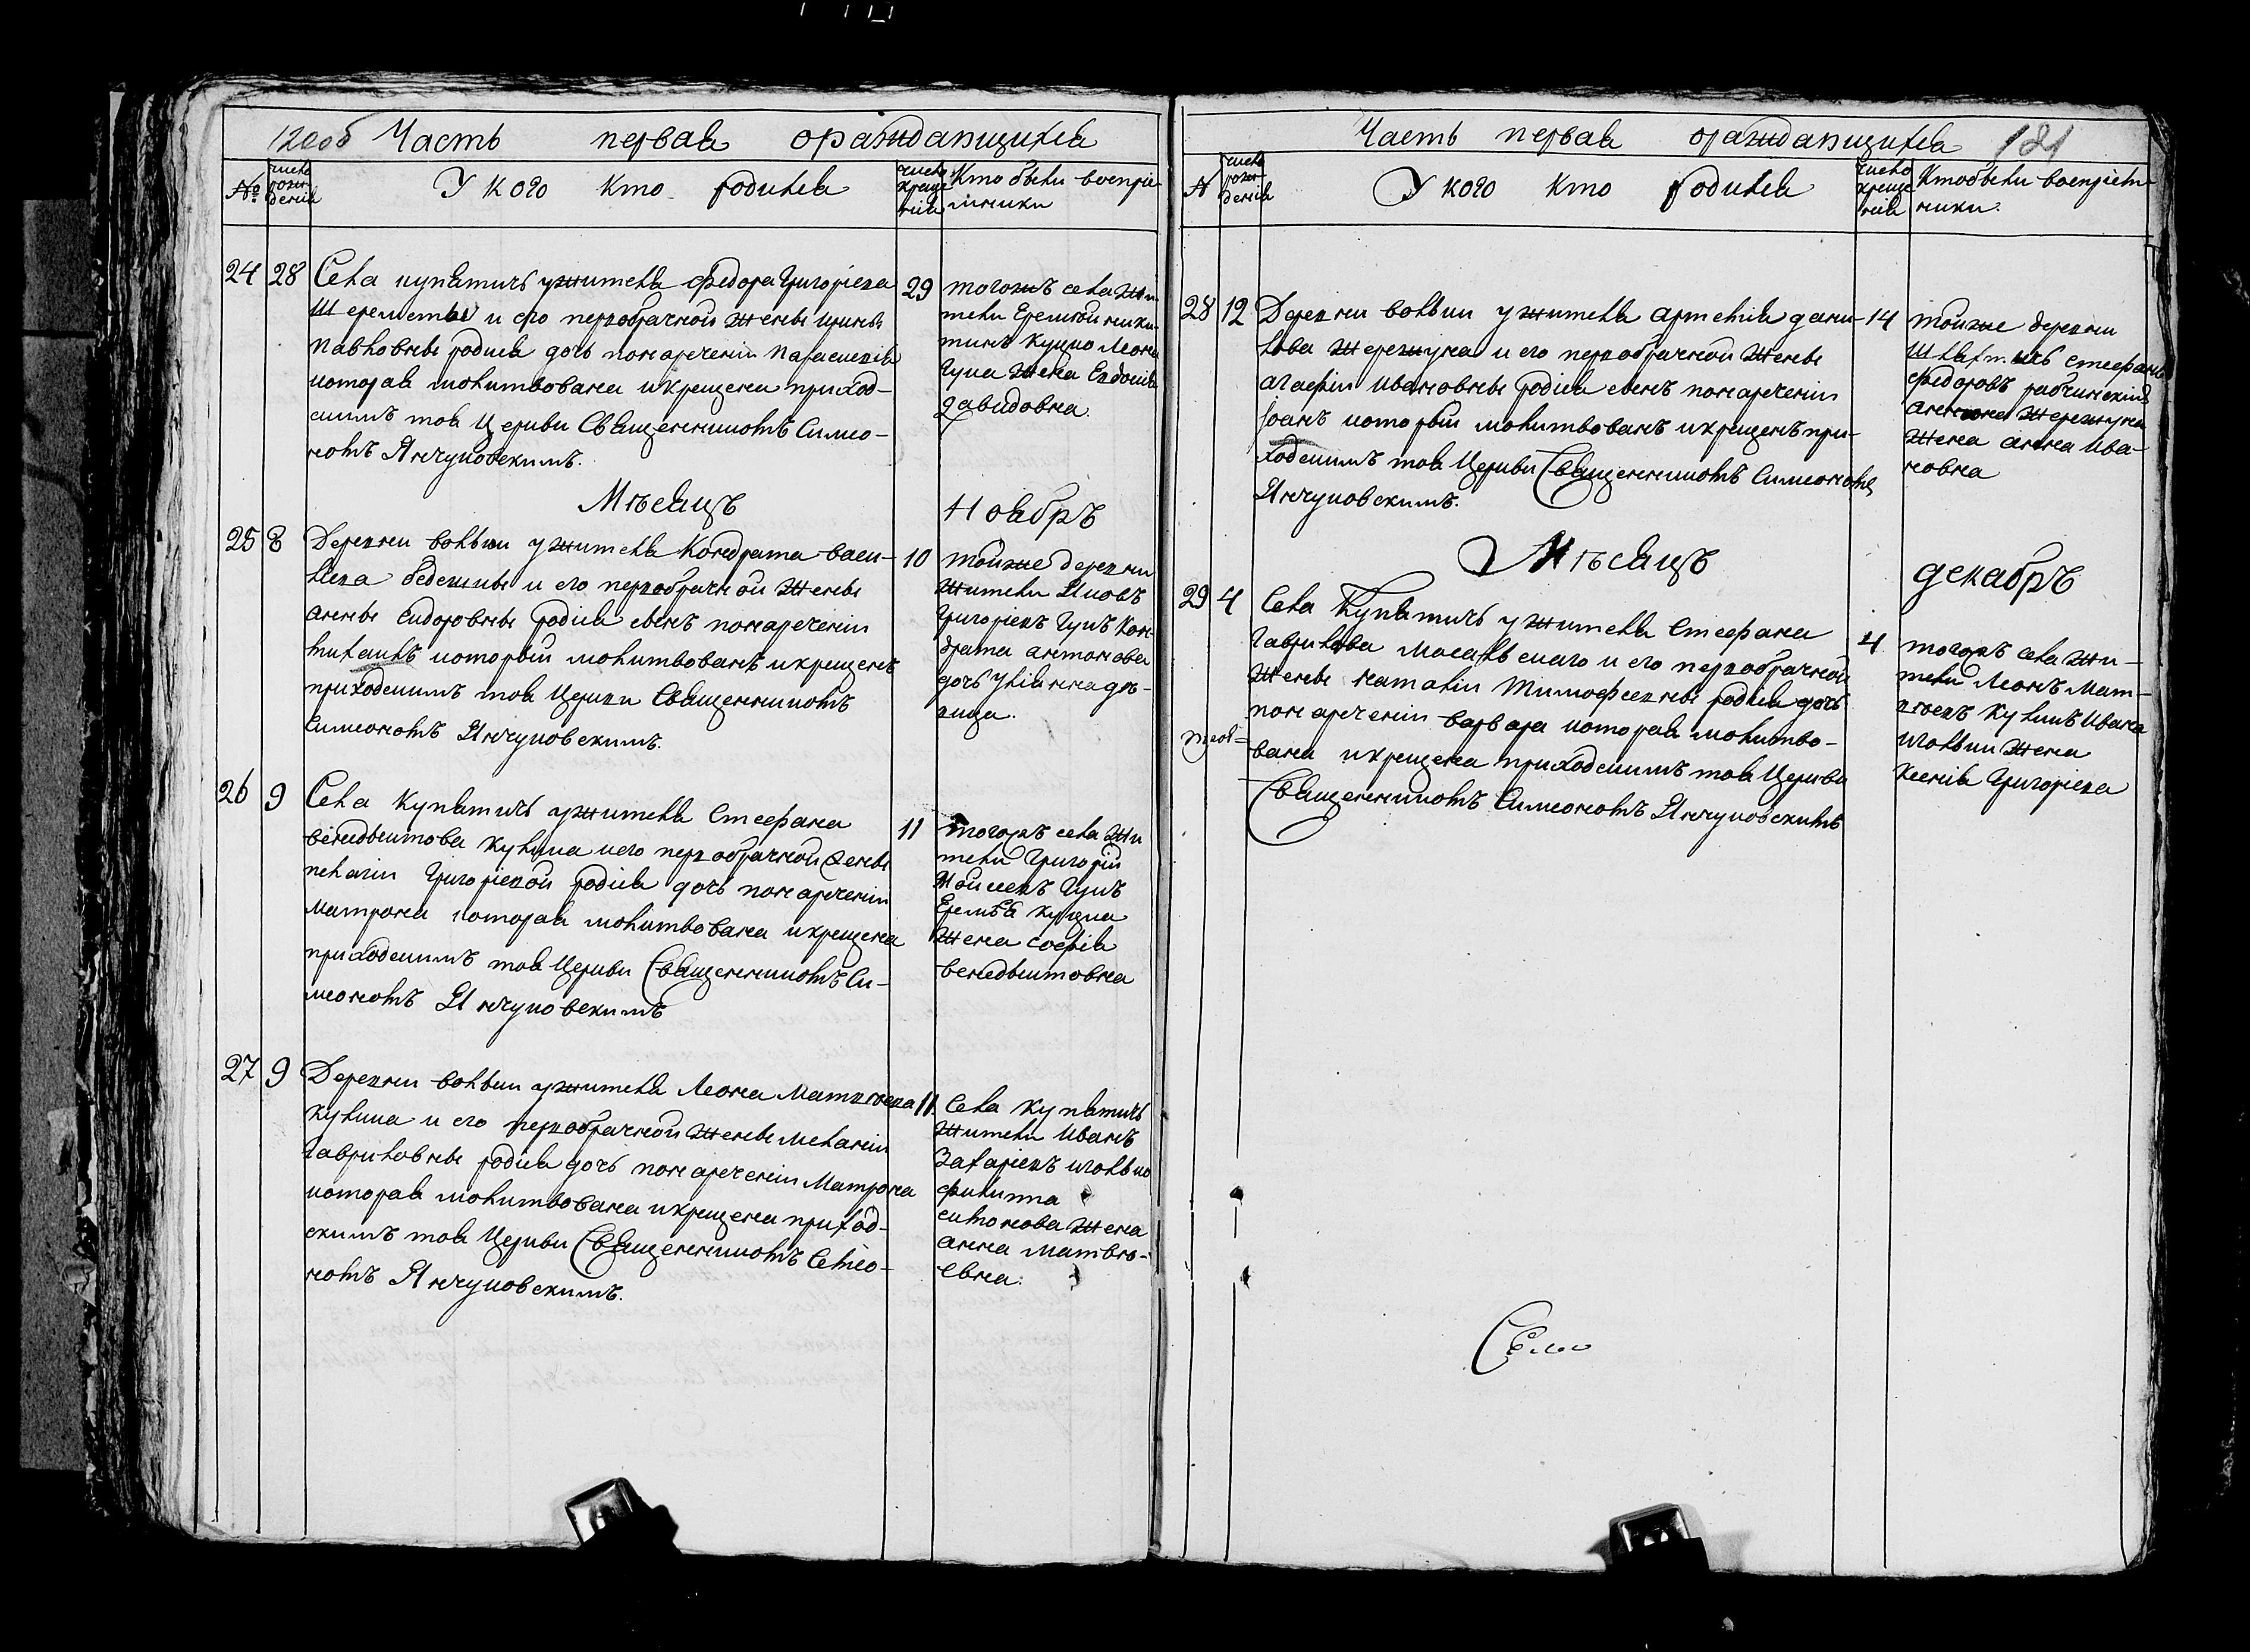 120об Часть первая ораждающихся
№ число рождения У кого кто родился число крещения Кто были воспріемники
24 28 Села купятичъ ужителя Федора Григоріева
Шереметы и его первобрачной женѣ Ирины
Павловнѣ родися дочь понареченіи Параскевія
которая молитвована икрещена приход-
скимъ тоя Церкви Священникомъ Симео-
номъ Янчуковскимъ.
29 тогожъ села жи-
тели Еремѣй Ники-
тинъ Куцко Леона
Гука жена Евдокія
Давидовна.
Мѣсяцъ Ноябрь
25 8 Деревни волвки ужителя Кондрата Васи-
ліева и его первобрачной женѣ
Аннѣ Сидоровнѣ родися сынъ понареченіи
Михаилъ который молитвованъ икрещенъ
приходскимъ тоя Церкви Священникомъ
Симеономъ Янчуковскимъ.
10 тойже деревни
жители Яковъ
Григоріевъ Гукъ Кон-
драта Антонова
дочь Уліяна дѣ-
вица.
26 9 Села Купятичъ ужителя Стефана
Венедыктова Кулика иего первобрачной женѣ
Пелагіи Григоріевой родися дочь понареченіи
Матрона которая молитвована икрещена
приходскимъ тоя Церкви Священникомъ Си-
меономъ Янчуковскимъ
11 тогожъ села жи
тели Григорій
Мойсеевъ Гукъ
Еремѣя Куцка
жена Софія
Венедыктовна
27 9 Деревни волвки ужителя Леона Матвѣева
Кулика и его первобрачной женѣ Меланіи
Гавриловнѣ родися дочь понареченіи Матрона
которая молитвована икрещена приход-
скимъ тоя Церкви Священникомъ Симео-
номъ Янчуковскимъ.
11 Села Купятичъ
жители Иванъ
Захаріевъ
Филиппа
жена
Анна Матвѣ-
евна.
Часть первая ораждающихся 121
№ число рождения У кого кто родился число крещения Кто были воспріем-
ники.
28 12 Деревни волвки ужителя Артемія Дани-
лова Жережуна и его первобрачной женѣ
Агафіи Ивановнѣ родися сынъ понареченіи
Іоанъ который молитвованъ икрещенъ при-
ходскимъ тоя Церкви Священникомъ Симеономъ
Янчуковскимъ.
14 тойже деревни
Шляхтичъ Стефанъ
Федоровъ
Жережуна
жена Анна Ива-
новна
Мѣсяцъ декабръ
29 4 Села Купятичъ ужителя Стефана
Гаврилова и его первобрачной
женѣ Наталіи Тимофеевнѣ родися дочь
понареченіи Варвара которая молитво-
вана икрещена приходскимъ тоя Церкви
Священникомъ Симеономъ Янчуковскимъ
4 тогожъ села жи-
тели Леонъ Мат-
вѣевъ Куликъ Ивана
жена
Ксенія Григоріева